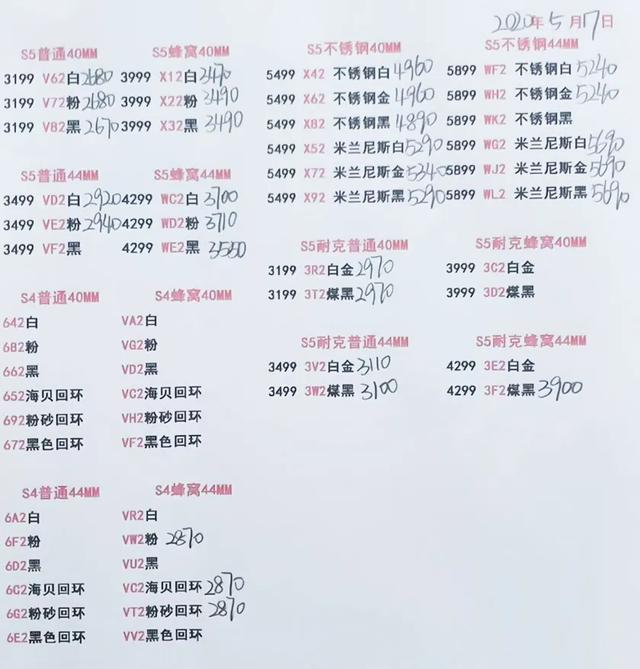 2020年5月17日
S5普通40MM
3199 V62白 2680
3199 V72粉 2680
3199 V82黑 2670
S5蜂窝40MM
3999 X12白 3470
3999 X22粉 3490
3999 X32黑 3490
S5不锈钢40MM
5499 X42 不锈钢白 4960
5499 X62 不锈钢金 4960
5499 X82 不锈钢黑 4890
5499 X52 米兰尼斯白 5290
5499 X72 米兰尼斯金 5340
5499 X92 米兰尼斯黑 5290
S5不锈钢44MM
5899 WF2 不锈钢白 5240
5899 WH2 不锈钢金 5240
5899 WK2 不锈钢黑
5899 WG2 米兰尼斯白 5690
5899 WJ2 米兰尼斯金 5690
5899 WL2 米兰尼斯黑 5690
S5普通44MM
3499 VD2白 2920
3499 VE2粉 2940
3499 VF2黑
S5蜂窝44MM
4299 WC2白 3700
4299 WD2粉 3710
4299 WE2黑 3550
S5耐克普通40MM
3199 3R2白金 2970
3199 3T2煤黑 2970
S5耐克蜂窝40MM
3999 3C2白金
3999 3D2煤黑
S4普通40MM
642白
682粉
662黑
652海贝回环
692粉砂回环
672黑色回环
S4蜂窝40MM
VA2白
VG2粉
VD2黑
VC2海贝回环
VH2粉砂回环
VF2黑色回环
S5耐克普通44MM
3499 3V2白金 3110
3499 3W2煤黑 3100
S5耐克蜂窝44MM
4299 3E2白金
4299 3F2煤黑 3900
S4普通44MM
6A2白
6F2粉
6D2黑
6C2海贝回环
6G2粉砂回环
6E2黑色回环
S4蜂窝44MM
VR2白
VW2粉 2870
VU2黑
VC2海贝回环 2870
VT2粉砂回环 2870
VV2黑色回环